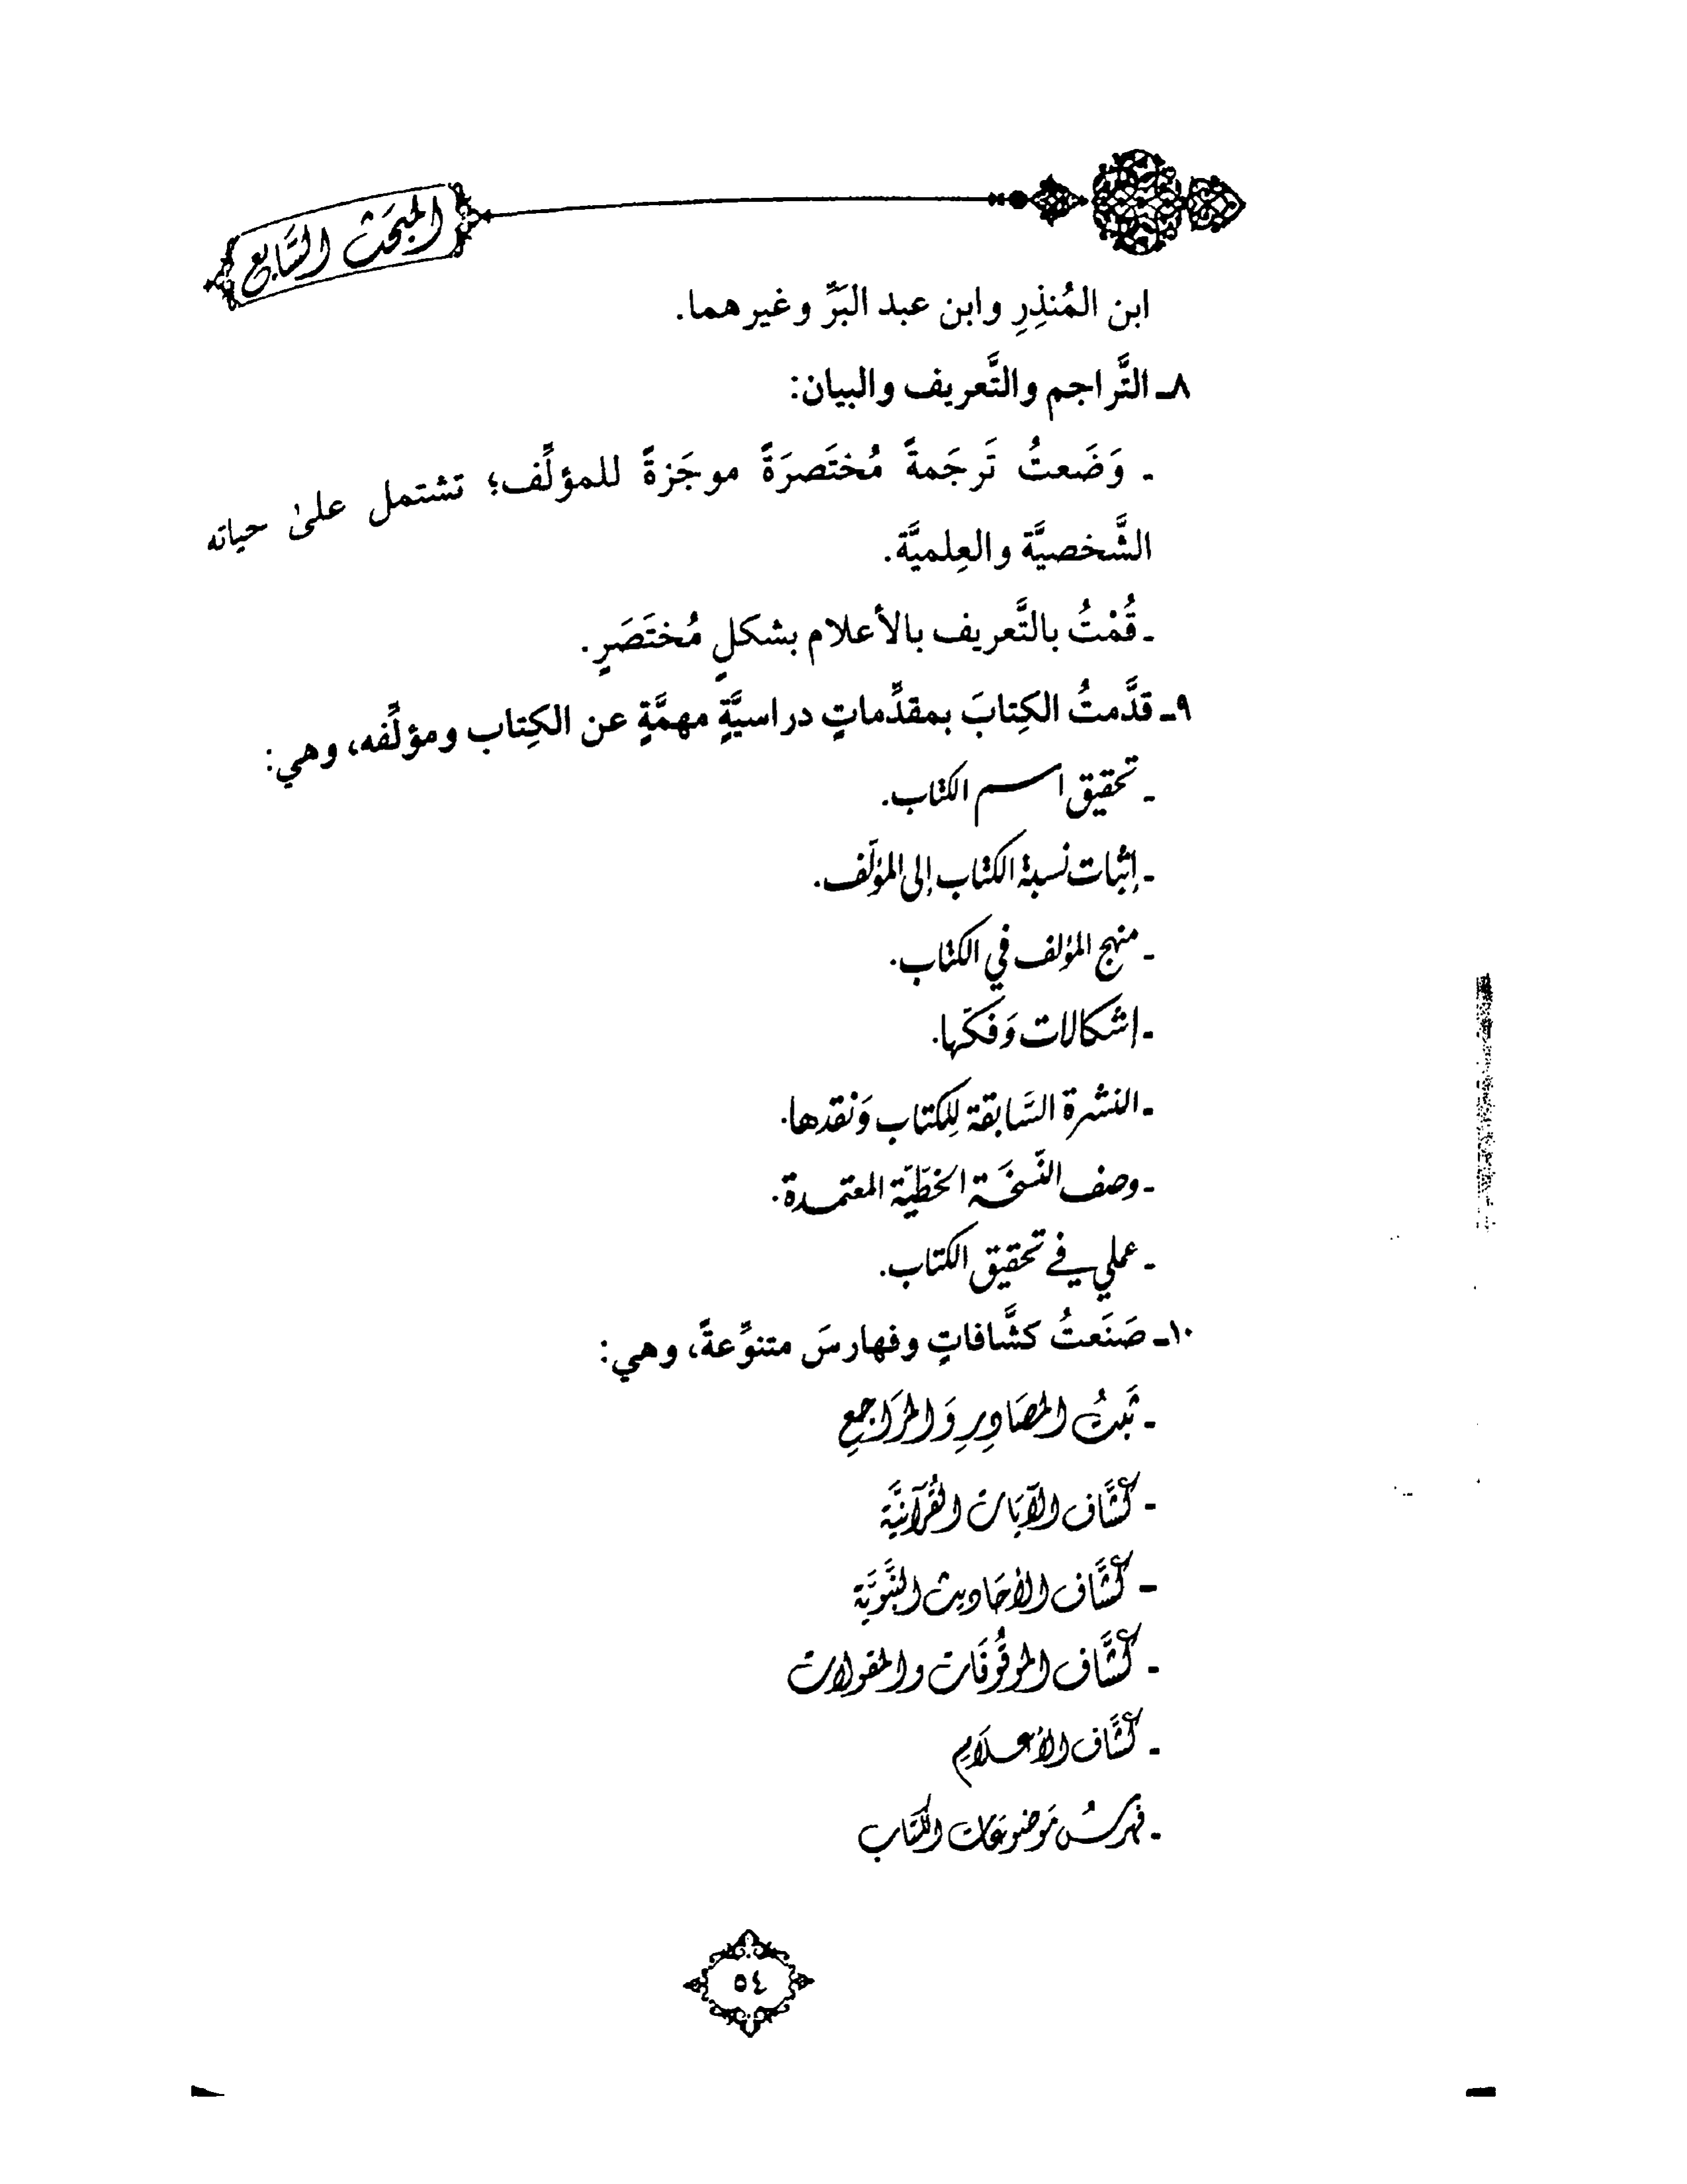 المبحث السابع
ابن المُنذِرِ وابن عبد البَرِّ وغيرهما.
٨ـ التَّراجم والتَّعريف والبيان:
ـ وَضَعتُ تَرجَمةً مُختَصرَةً موجَزةً للمؤلِّف؛ تشتمل علىٰ حياته
الشَّخصيَّة والعِلميَّة.
ـ قُمْتُ بالتَّعريف بالأعلام بشكلٍ مُختَصَرٍ.
٩ـ قدَّمتُ الكِتابَ بمقدِّماتٍ دراسيَّةٍ مهمَّةٍ عن الكِتاب ومؤلِّفه، وهي:
ـ تحقيق اسم الكتاب.
ـ إثبات نسبة الكتاب إلى المؤلّف.
ـ منهج المؤلف في الكتاب.
ـ إشكالات وَفكّها.
ـ النشرة السَّابقة لِلكتاب وَنقدها.
ـ وصف النّسخَة الخطّيّة المعتمدة.
ـ عملي في تحقيق الكتاب.
١٠ـ صَنَعتُ كشَّافاتٍ وفهارسَ متنوِّعةً، وهي:
ـ ثَبتُ المصَادِرِ وَالمرَاجعِ
ـ كشَّاف الآيَات القُرآنيَّة
ـ كشَّاف الأحَاديث النَّبَويَّة
ـ كشَّاف الموقُوفَات والمقولات
ـ كشَّاف الأعلَام
ـ فهرسُ مَوضوعَات الكتَاب
٥٤